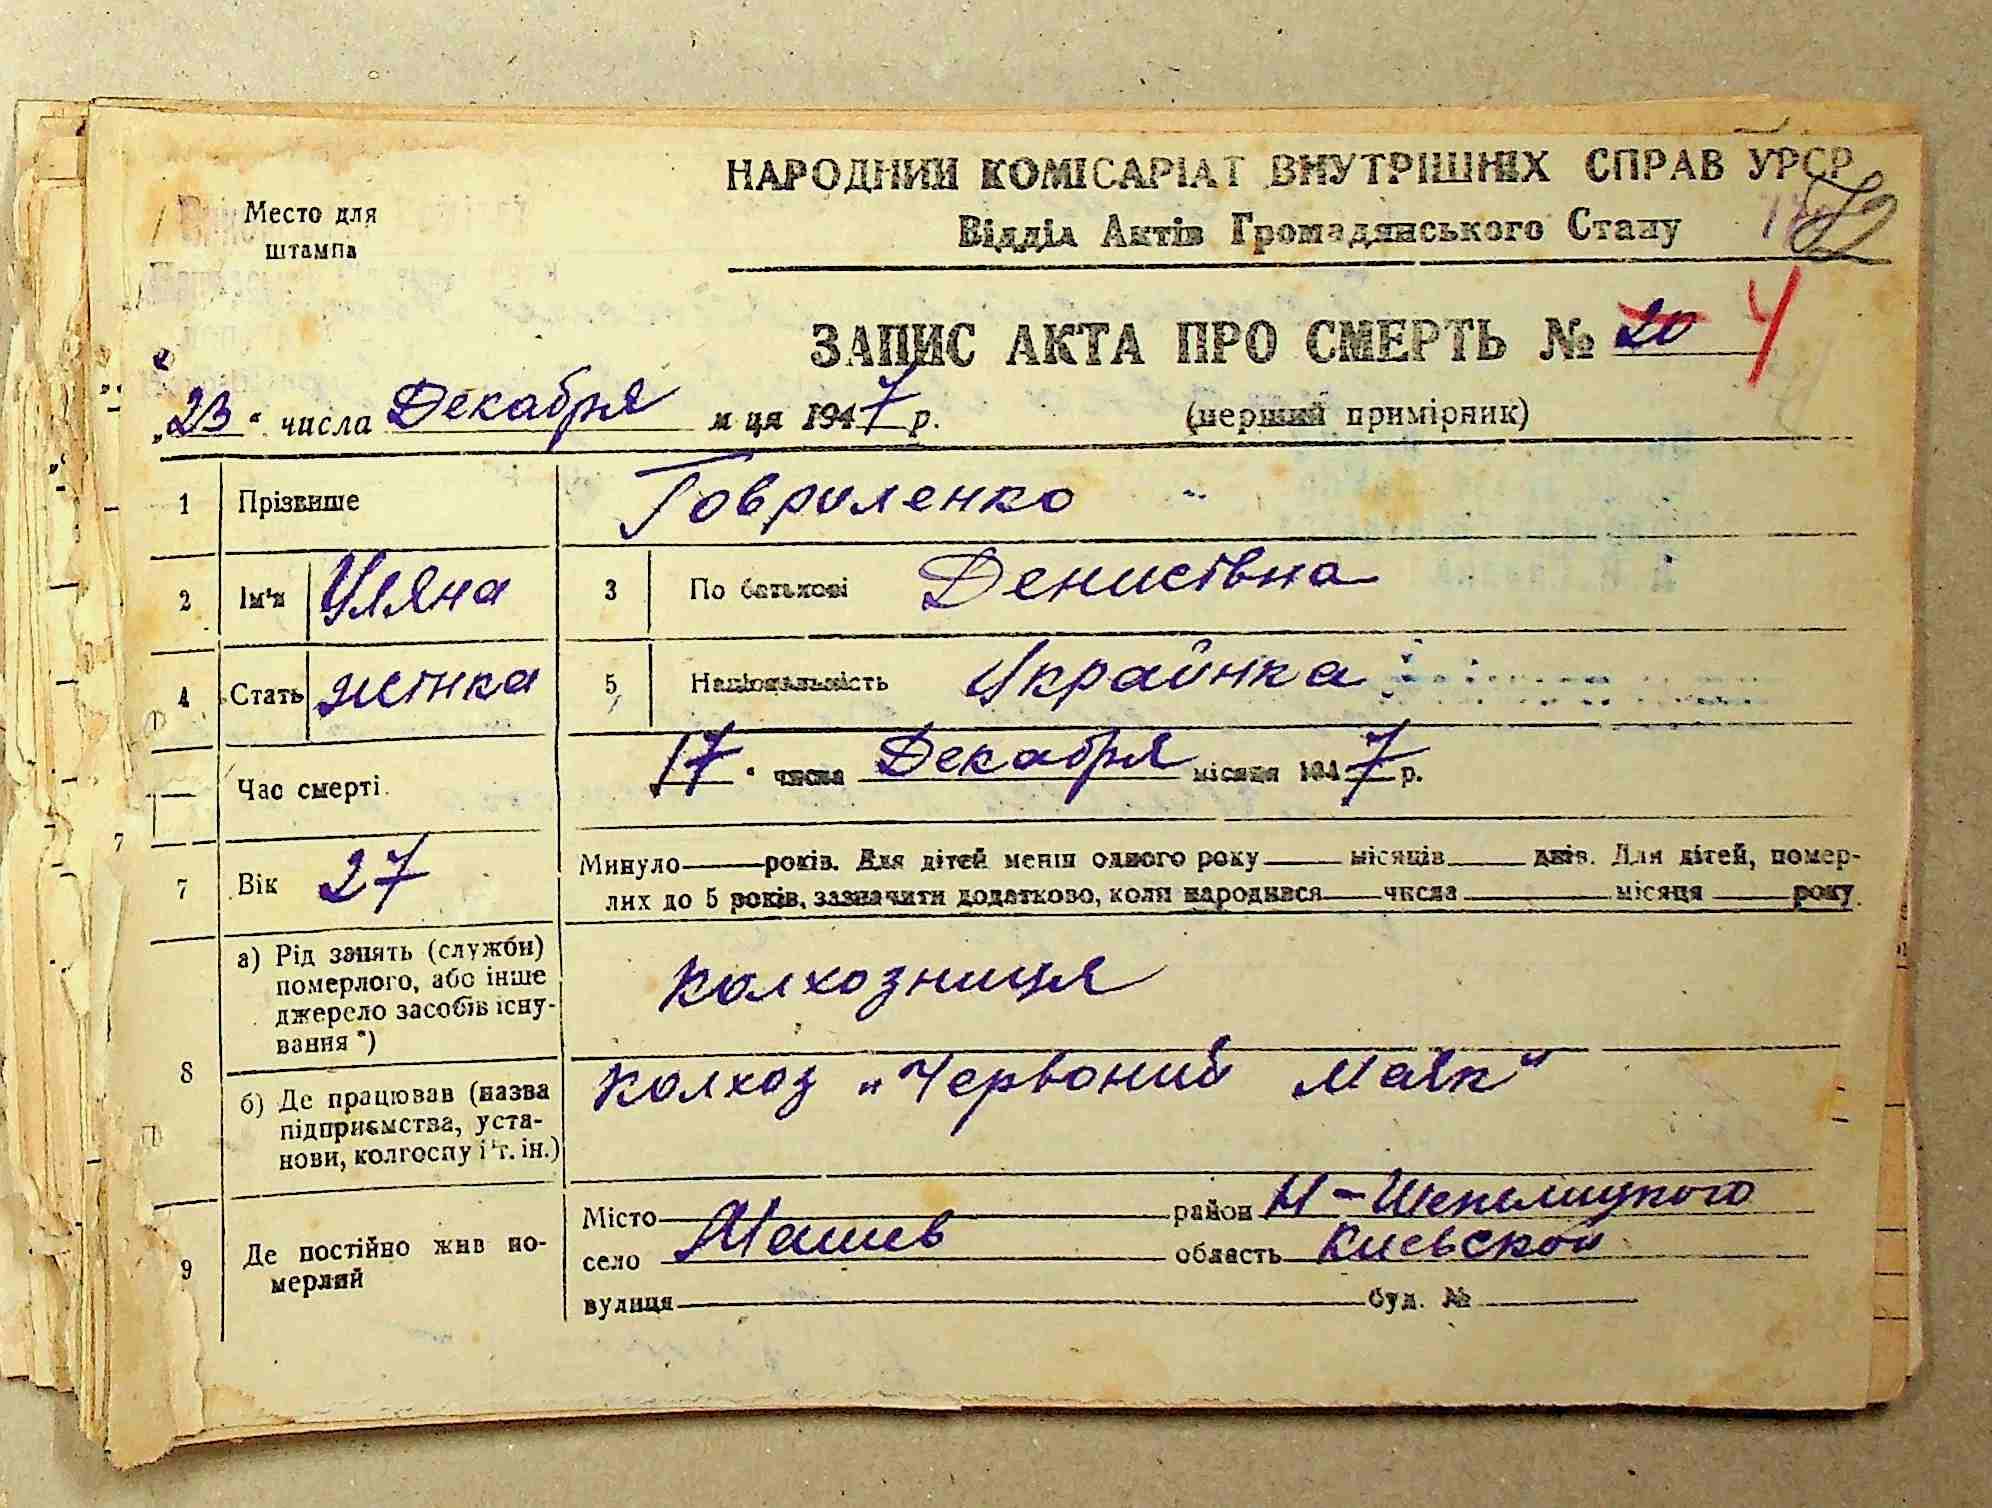 НАРОДНИЙ КОМІСАРІАТ ВНУТРІШНІХ СПРАВ УРСР
Відділ Актів Громадянського Стану
Место для
штампа
ЗАПИС АКТА ПРО СМЕРТЬ № 20 4
„23“ числа Декабря м ця 1947 р. (перший примірник)
1 Прізвище Говриленко
2 Ім'я Уляна 3 По батькові Денисівна
4 Стать жінка 5 Національність Украинка
Час смерті 17“ числа Декабря місяця 1947 р.
7 Вік 27 Минуло років. Для дітей менш одного року місяців днів. Для дітей, помер-
лих до 5 років, зазначити додатково, коли народився числа місяця року
8 а) Рід занять (служби)
померлого, або інше
джерело засобів існу-
вання *)
колхозниця
б) Де працював (назва
підприємства, уста-
нови, колгоспу і т. ін.)
колхоз „Червоний Маяк“
9 Де постійно жив по-
мерлий
Місто район Н-Шепелицкого
село Машев область Киевской
вулиця буд. №